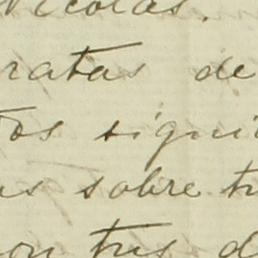 Nicolas.
ratas de
tos signi
as sobre tu
on tus d